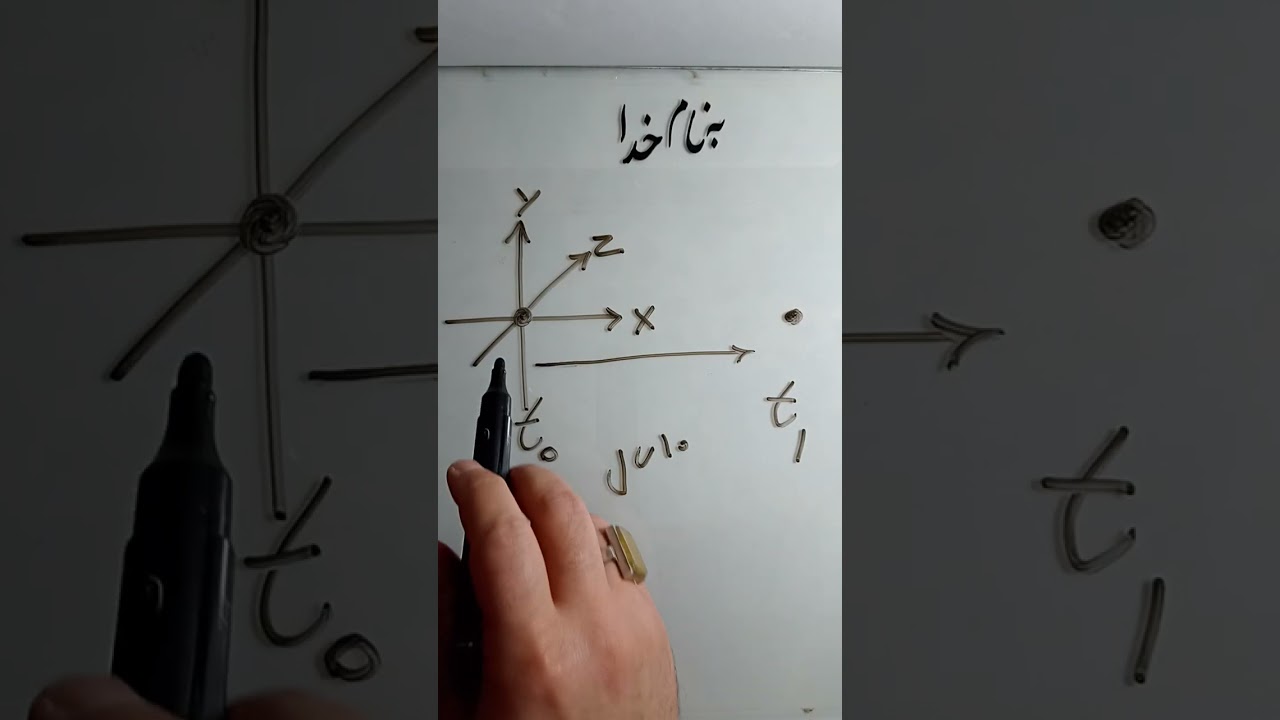 به نام خدا
Y
Z
X
t₀
t₁
۱۰ سال